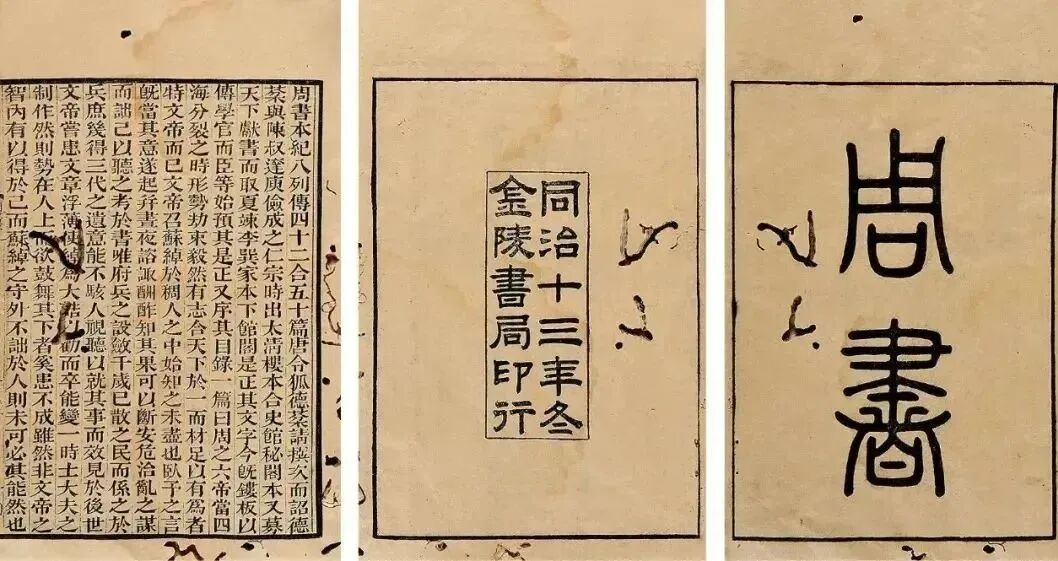 周書
同治十三年冬
金陵書局印行
周書本紀八列傳四十二合五十篇唐令狐德棻請撰次而詔德
棻與陳叔達庾儉成之仁宗時出太清樓本合史館祕閣本又募
天下獻書而取夏竦李巽家本下館閣是正其文字今旣鏤板以
傳學官而臣等始預其是正又序其目錄一篇曰周之六帝當四
海分裂之時形勢劫束毅然有志合天下於一而材足以有爲者
特文帝而已文帝召蘇綽於稠人之中始知之未盡也臥予之言
旣當其意遂起幷晝夜諮諏酬酢知其果可以斷安危治亂之謀
而詘己以聽之考於書唯府兵之設斂千歲已散之民而係之於
兵庶幾得三代之遺意能不駭人視聽以就其事而效見於後世
文帝嘗患文章浮薄使綽爲大誥以勸而卒能變一時士大夫之
制作然則勢在人上而欲鼓舞其下者奚患不成雖然非文帝之
智內有以得於己而蘇綽之守外不詘於人則未可必其能然也